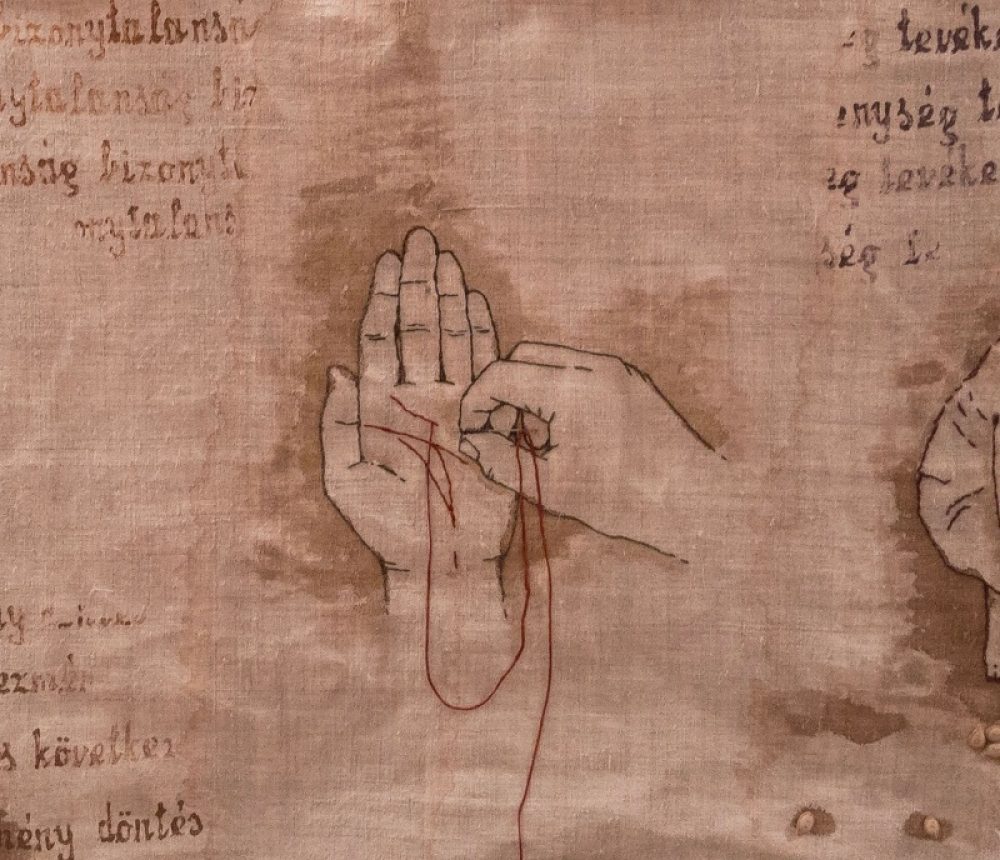 bizonytalansá
nytalanság biz
nság bizonyta
nytalans
ég tevék
enység te
ég tevéke
ség te
és követke
mény döntés